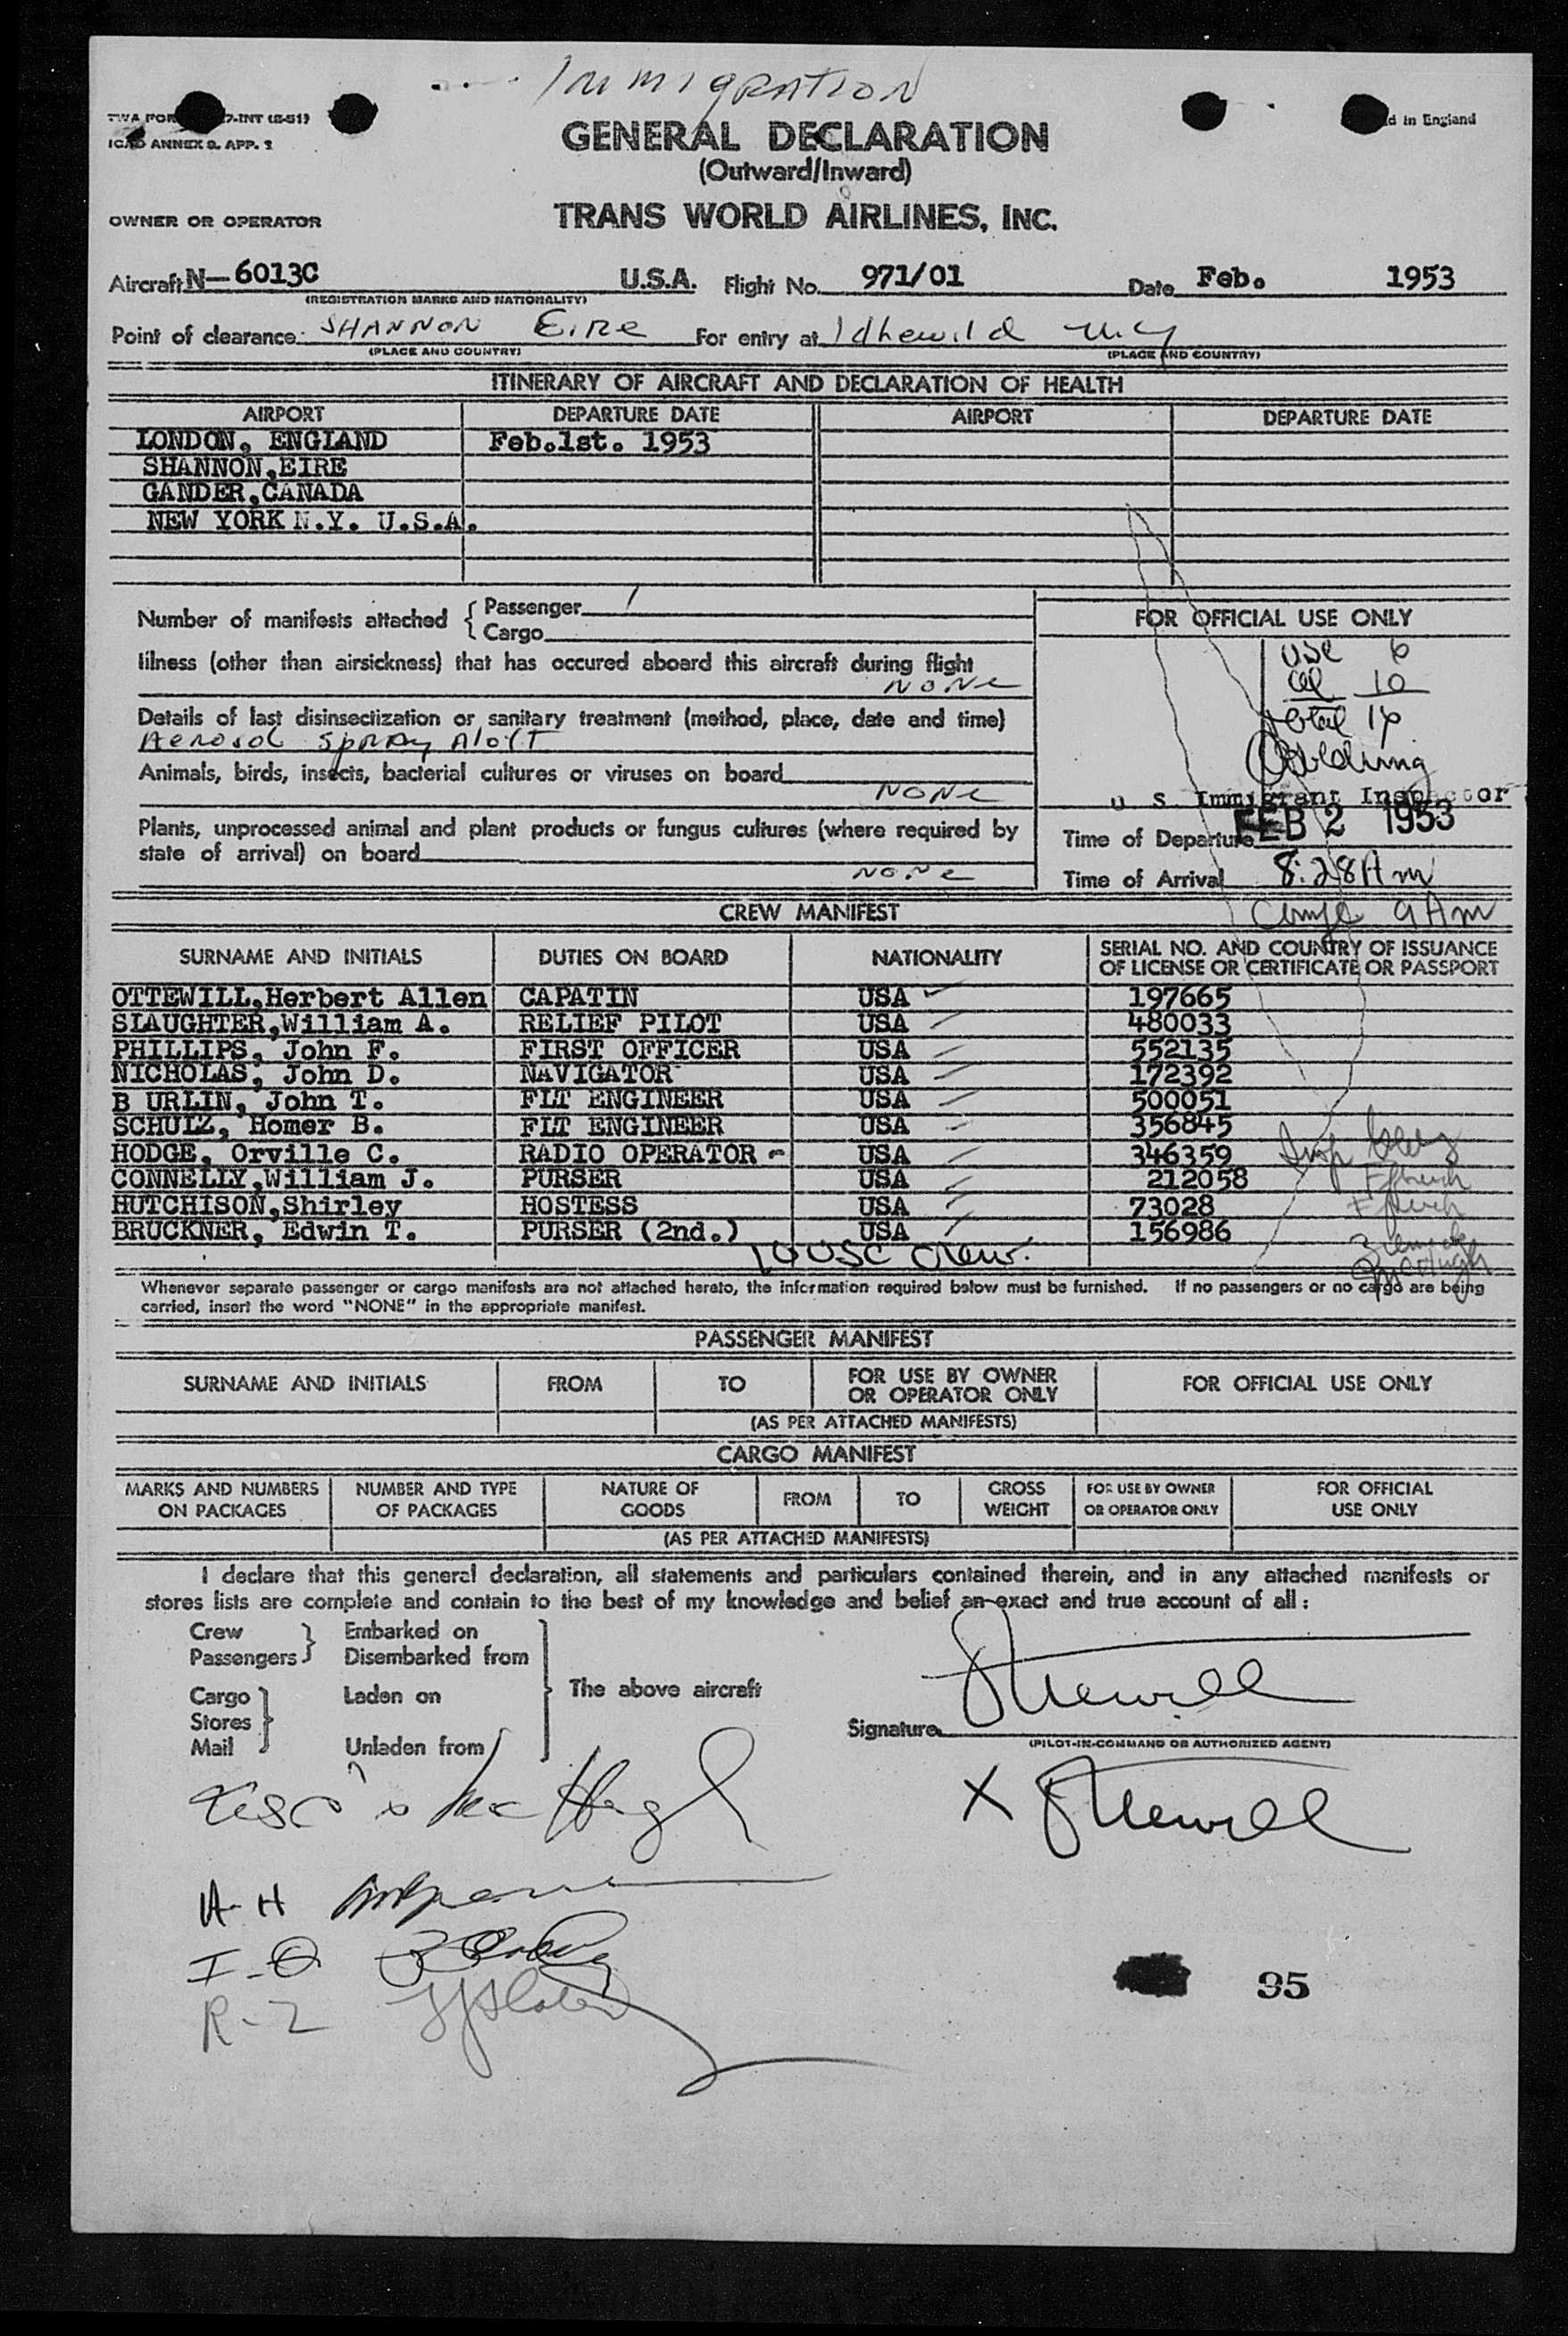 Immigration
TWA FOR 7-INT (2-51)
ICAO ANNEX 9. APP. 1
d in England
GENERAL DECLARATION
(Outward/Inward)
OWNER OR OPERATOR
TRANS WORLD AIRLINES, INC.
Aircraft N-6013C U.S.A. Flight No. 971/01 Date Feb. 1953
(REGISTRATION MARKS AND NATIONALITY)
Point of clearance SHANNON EIRE For entry at Idlewild N.Y
(PLACE AND COUNTRY) (PLACE AND COUNTRY)
ITINERARY OF AIRCRAFT AND DECLARATION OF HEALTH
AIRPORT DEPARTURE DATE AIRPORT DEPARTURE DATE
LONDON, ENGLAND Feb.1st. 1953
SHANNON,EIRE
GANDER,CANADA
NEW YORK N.Y. U.S.A.
Number of manifests attached { Passenger 1
Cargo
FOR OFFICIAL USE ONLY
USC 6
10
total 16
Illness (other than airsickness) that has occured aboard this aircraft during flight
NONE
Details of last disinsectization or sanitary treatment (method, place, date and time)
Aerosol Spray Aloft
Animals, birds, insects, bacterial cultures or viruses on board
NONE
U S Immigrant Inspector
Plants, unprocessed animal and plant products or fungus cultures (where required by
state of arrival) on board
NONE
FEB 2 1953
Time of Departure
Time of Arrival 8:28 Am
9 Am
CREW MANIFEST
SURNAME AND INITIALS DUTIES ON BOARD NATIONALITY SERIAL NO. AND COUNTRY OF ISSUANCE
OF LICENSE OR CERTIFICATE OR PASSPORT
OTTEWILL,Herbert Allen CAPATIN USA 197665
SLAUGHTER,William A. RELIEF PILOT USA 480033
PHILLIPS, John F. FIRST OFFICER USA 552135
NICHOLAS, John D. NAVIGATOR USA 172392
B URLIN, John T. FLT ENGINEER USA 500051
SCHULZ, Homer B. FLT ENGINEER USA 356845
HODGE, Orville C. RADIO OPERATOR - USA 346359
CONNELLY,William J. PURSER USA 212058
HUTCHISON,Shirley HOSTESS USA 73028
BRUCKNER, Edwin T. PURSER (2nd.) USA 156986
10 USC Crew.
Whenever separate passenger or cargo manifests are not attached hereto, the information required below must be furnished. If no passengers or no cargo are being
carried, insert the word "NONE" in the appropriate manifest.
PASSENGER MANIFEST
SURNAME AND INITIALS FROM TO FOR USE BY OWNER
OR OPERATOR ONLY FOR OFFICIAL USE ONLY
(AS PER ATTACHED MANIFESTS)
CARGO MANIFEST
MARKS AND NUMBERS
ON PACKAGES NUMBER AND TYPE
OF PACKAGES NATURE OF
GOODS FROM TO GROSS
WEIGHT FOR USE BY OWNER
OR OPERATOR ONLY FOR OFFICIAL
USE ONLY
(AS PER ATTACHED MANIFESTS)
I declare that this general declaration, all statements and particulars contained therein, and in any attached manifests or
stores lists are complete and contain to the best of my knowledge and belief an exact and true account of all :
Crew Embarked on
Passengers Disembarked from
Cargo Laden on The above aircraft
Stores
Mail Unladen from
Signature Ottewill
(PILOT-IN-COMMAND OR AUTHORIZED AGENT)
X Ottewill
A-H
I-O
R-2
95